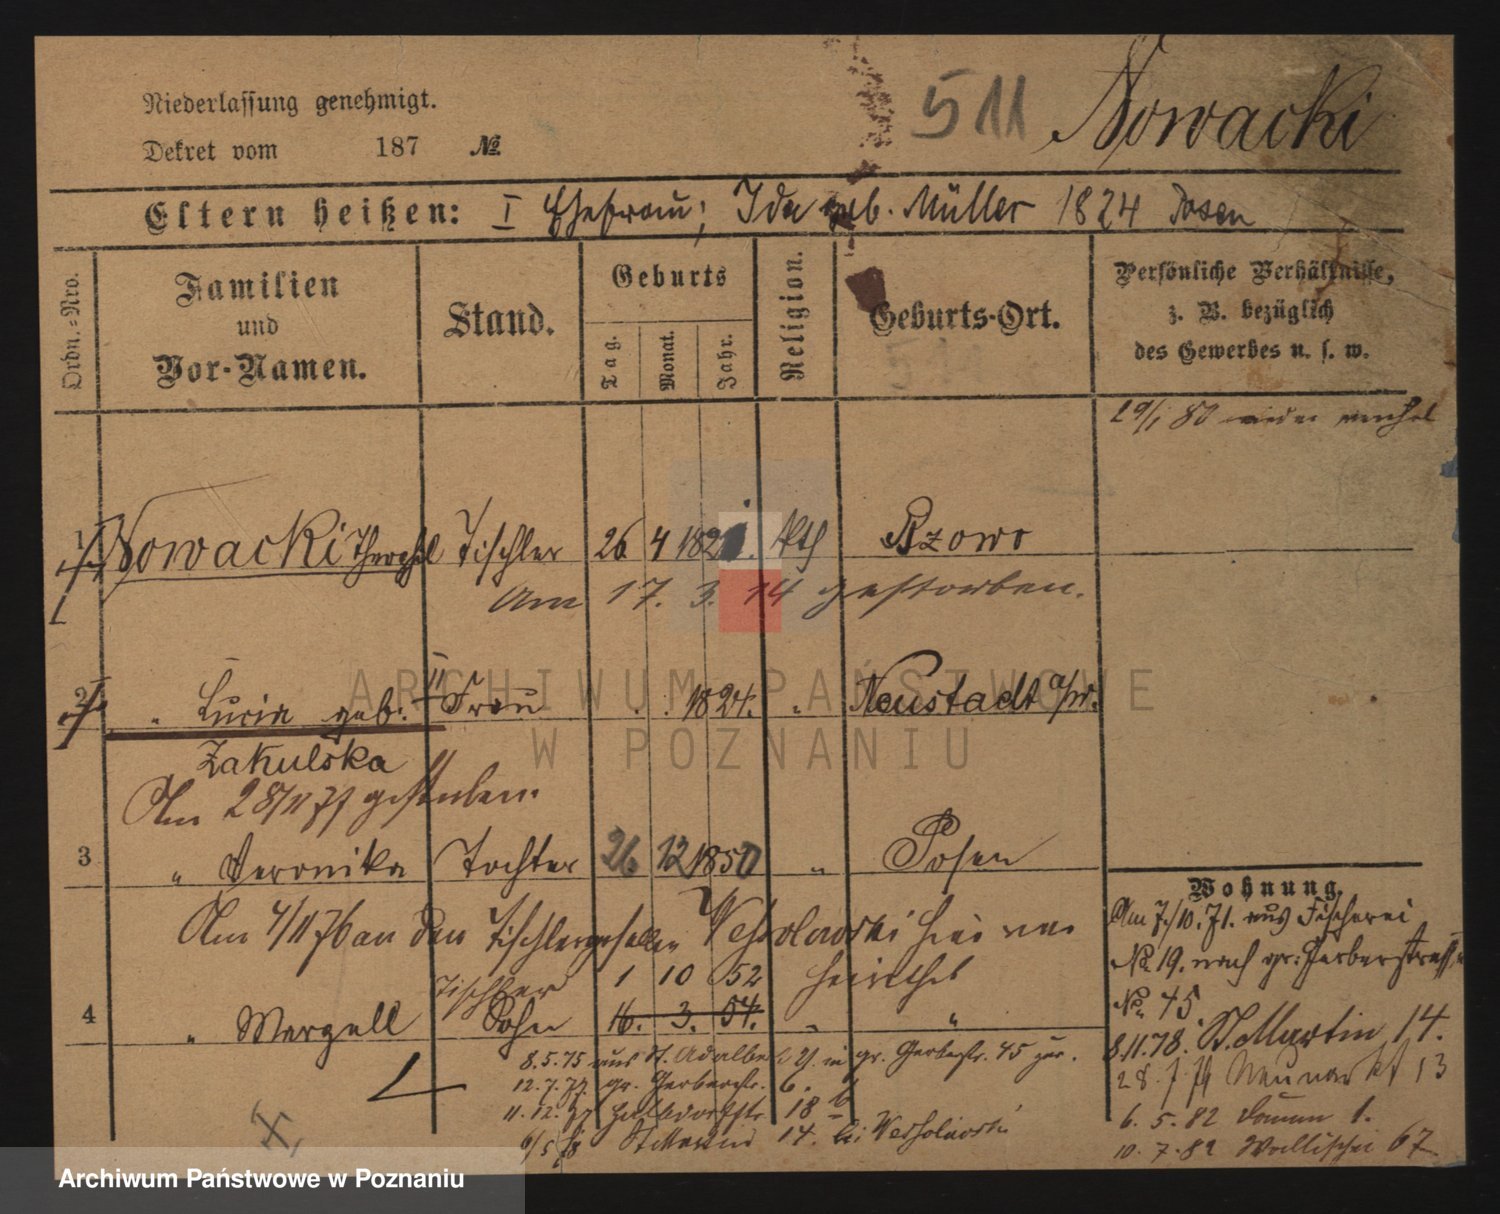 Niederlassung genehmigt.
Dekret vom 187 №
511
Nowacki
Eltern heißen: I Ehefrau; Ida geb. Müller 1824 Posen
Ordn.=Nro.
Familien
und
Vor-Namen.
Stand.
Geburts
Tag.
Monat.
Jahr.
Religion.
Geburts-Ort.
Persönliche Verhältnisse,
z. B. bezüglich
des Gewerbes u. s. w.
29/1 80
1 Nowacki Theophil Tischler 26 4 182 kth Rzowo
Am 17. 3. 14 gestorben.
2 " Lucia geb. II Frau . . 1824. " Neustadt a/w.
Zakulska
Am 28/11 77 gestorben.
3 " Veronika Tochter 26 12 1850 " Posen
Am 4/11 76 an den Tischlergesellen hier ver
heirathet
Tischler 1 10 52
4 " Margell Sohn 16. 3. 54. " "
8.5.75 aus St. Adalbert in gr. Gerberstr. 45 zur.
12.7.77. gr. Gerberstr. 6.
11.12.77 Halbdorfstr. 18 b
6/5 78 St Martin 14. bei
Wohnung.
Am 7./10. 71. aus Fischerei
№ 19. nach gr. Gerberstrasse
№ 45
8.11.78. St. Martin 14.
Neumarkt 13
6. 5. 82 Damm 1.
10. 7. 82 Wallischei 67
ARCHIWUM PAŃSTWOWE
W POZNANIU
Archiwum Państwowe w Poznaniu